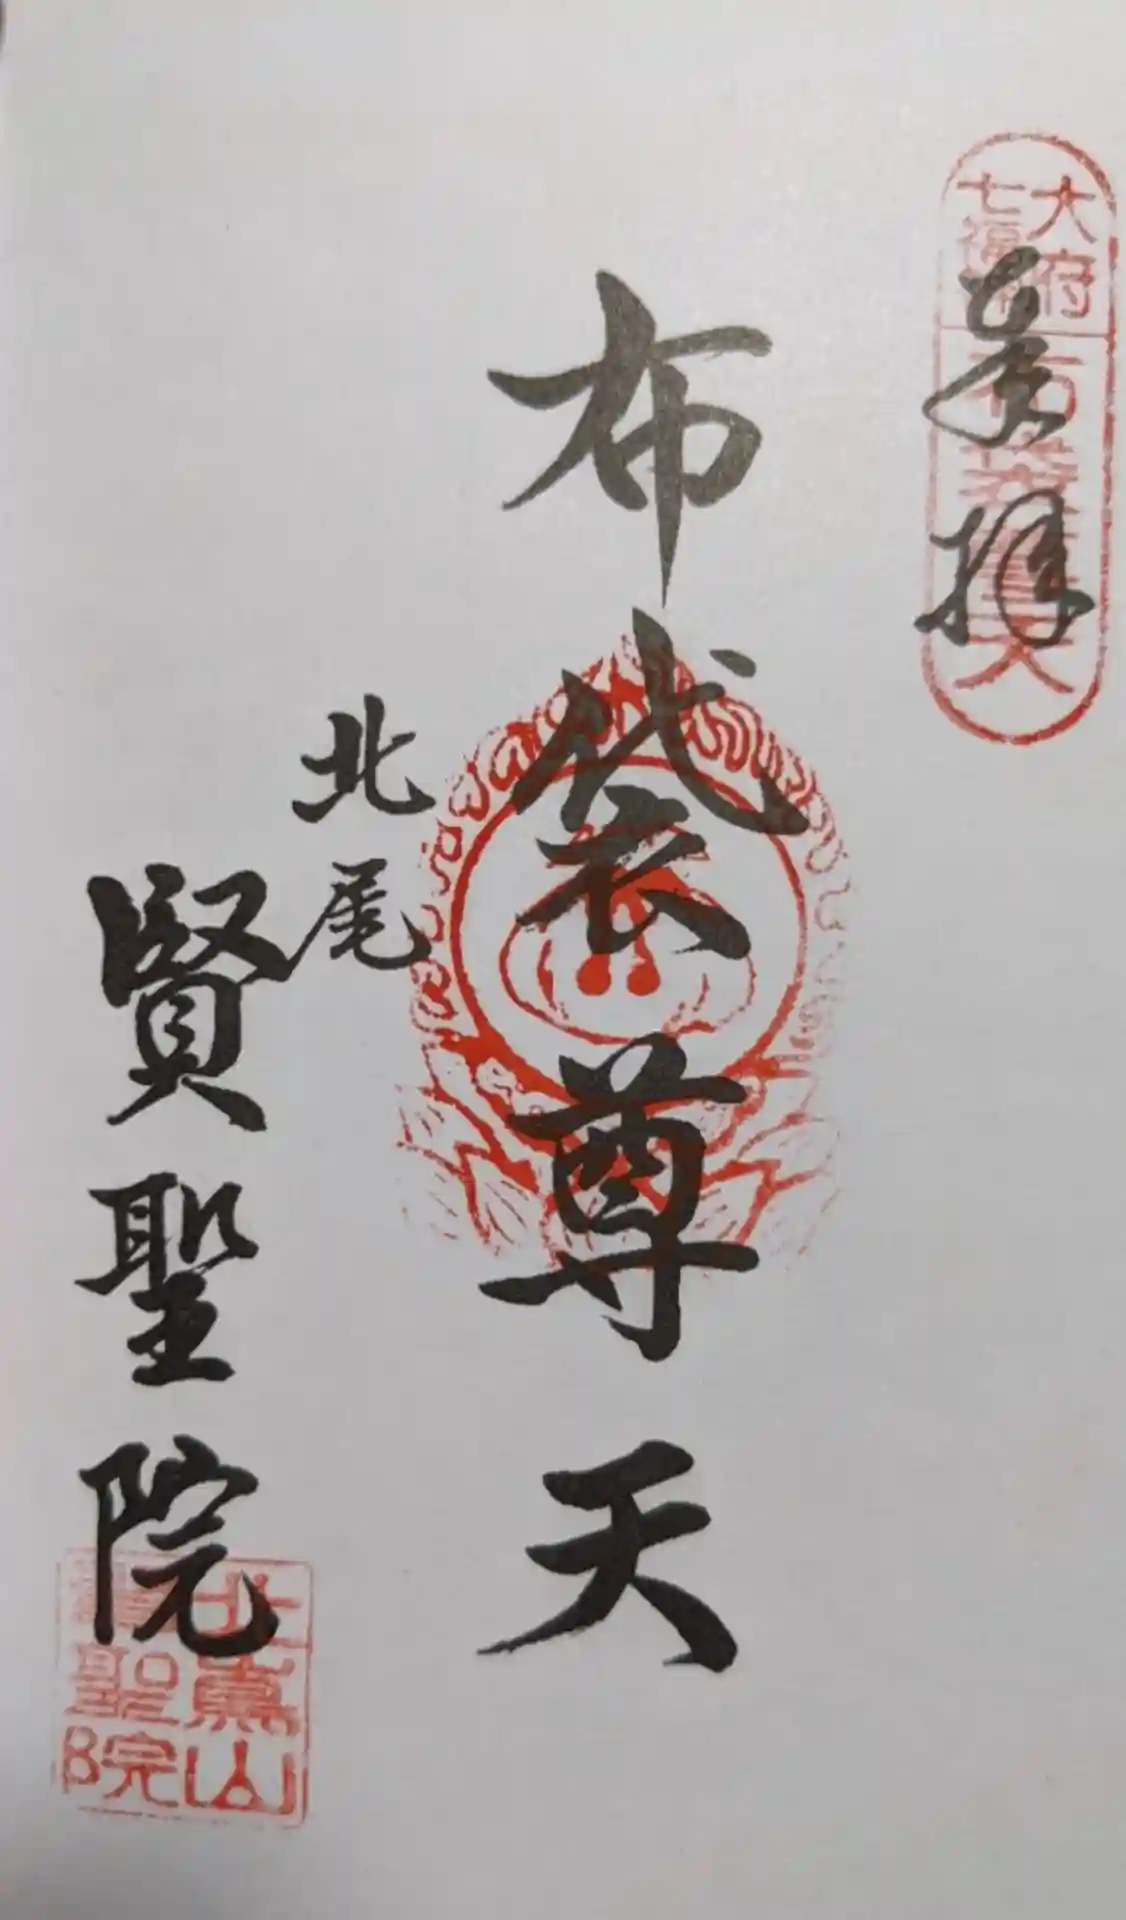 奉拝
大府
七福神
布袋尊天
布袋尊天
北尾
賢聖院
北嵩山
賢聖院